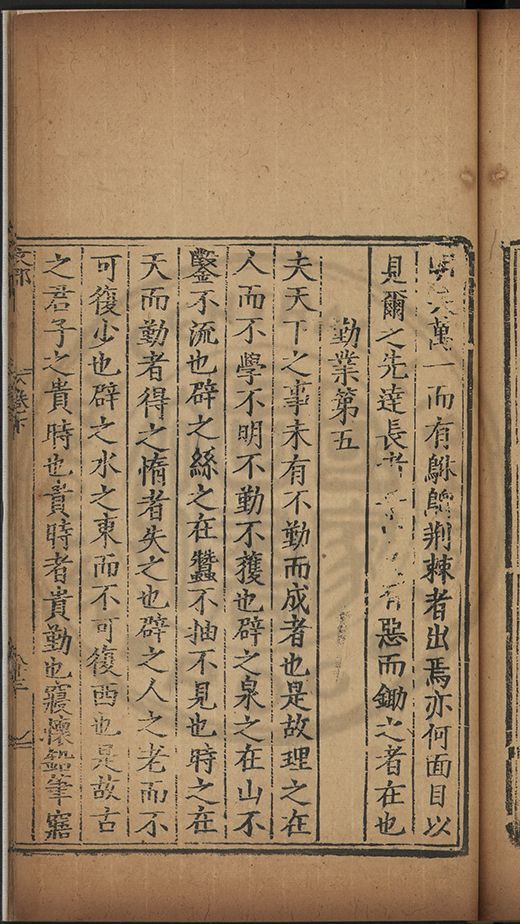 萬一而有荆棘者出焉亦何面目以
見爾之先達長有惡而鋤之者在也
勤業第五
夫天下之事未有不勤而成者也是故理之在
人而不學不明不勤不獲也辟之泉之在山不
鑿不流也辟之絲之在蠶不抽不見也時之在
天而勤者得之惰者失之也辟之人之老而不
可復少也辟之水之東而不可復西也是故古
之君子之貴時也貴時者貴勤也寢懷鉛筆寤